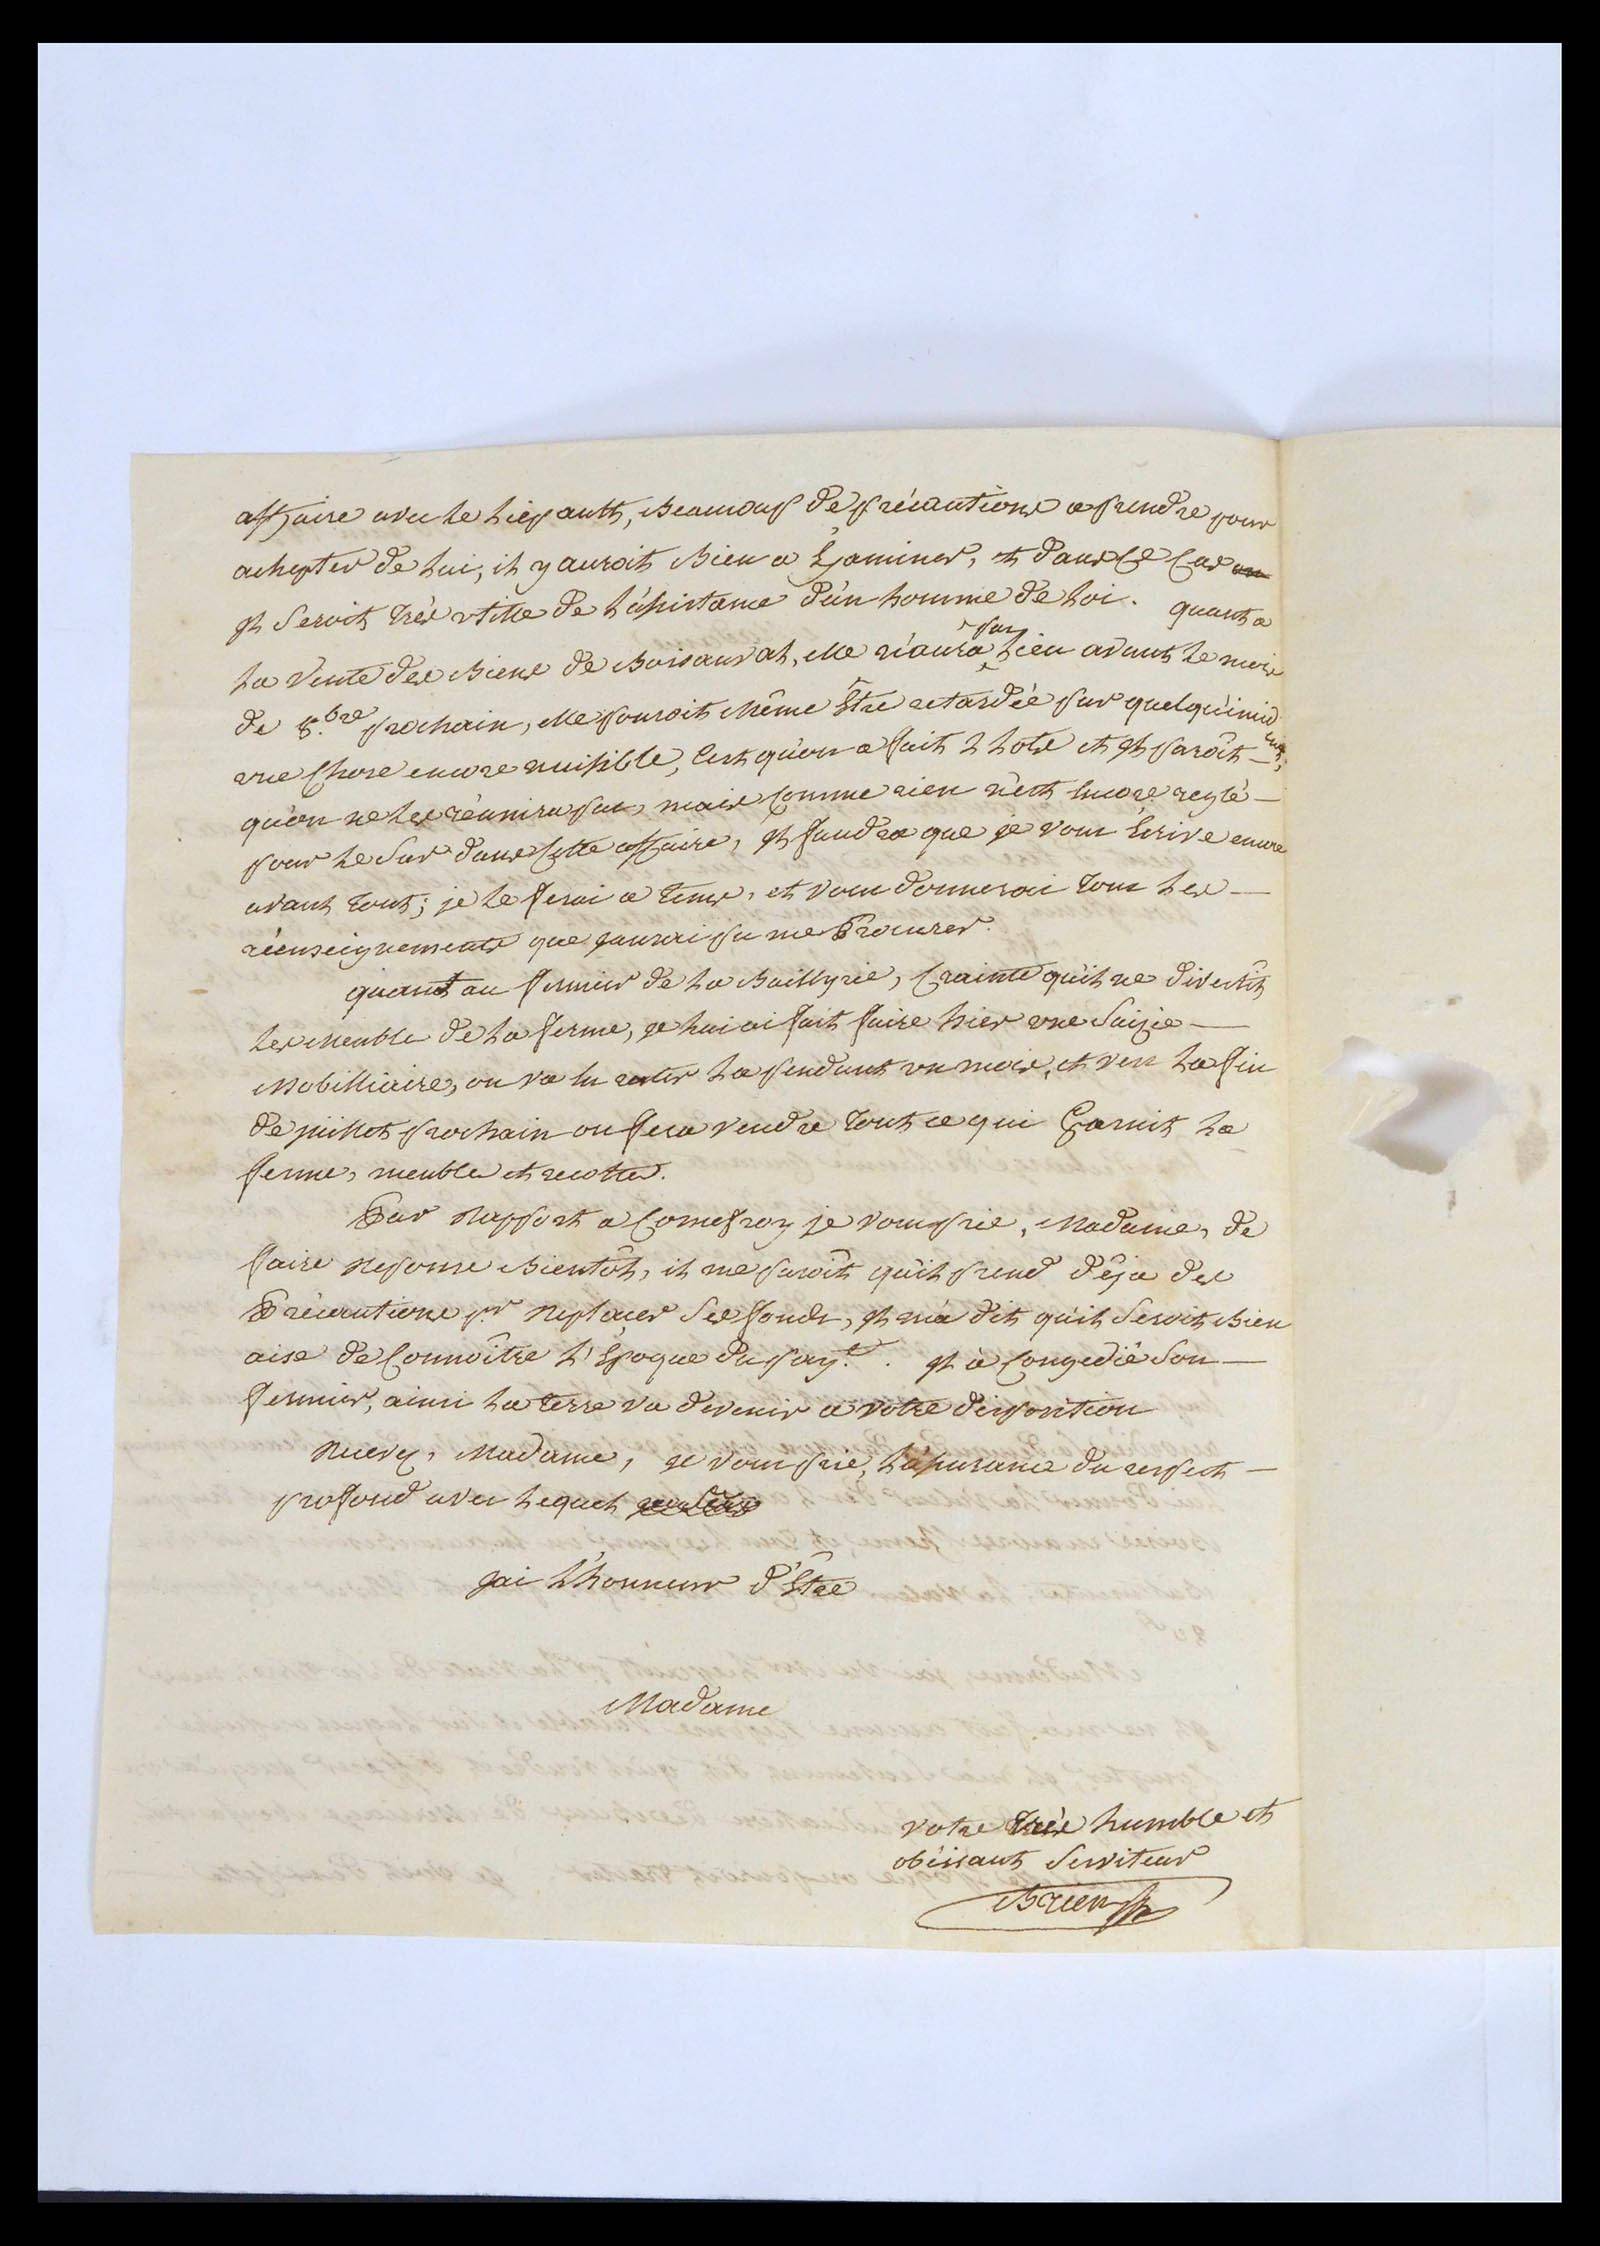 affaire avec le Liepault, Beaucoup de précautions a prendre pour
achepter de lui, il y auroit Bien a Examiner, et dans Ce Cas
Il Seroit très utille de l'assistance d'un homme de loi. quant a
la Vente des Biens de Boisauval, elle n'aura pas lieu avant le mois
de 8.bre prochain, elle pouroit même Être retardée par quelqu'incident,
une Chose encore nuisible, C'est qu'on a fait 2 lots et Il paroit —
qu'on ne les réunira pas, mais Comme rien n'est Encore reglé —
pour le Sur dans Cette affaire, Il faudra que je vous Ecrive encore
avant tout; je le ferai a tems, et vous donnerai tous les —
réenseignements que jaurai pu me Procurer.
quant au fermier de la Baillyrie, Crainte qu'il ne divertit
les meubles de la ferme, je lui ai fait faire hier une Saizie —
Mobilliaire, on va la pendant un mois, et vers la fin
de juillet prochain on fera vendre tout ce qui Garnit la
ferme, meubles et recoltes.
Par Rapport a Comefroy je vous prie, Madame, de
faire Reponse Bientôt, il me paroît qu'il prend déja des
Précautions p.r Replacer Ses fonds, Il m'a dit qu'il Seroit Bien
aise de Connoître l'Epoque du pay.t. Il a Congedié Son —
fermier, ainsi la terre va devenir a votre disposition
Recevez, Madame, je vous prie, l'assurance du respect —
profond avec lequel
jai l'honneur d'Être
Madame
votre très humble et
obéissant Serviteur